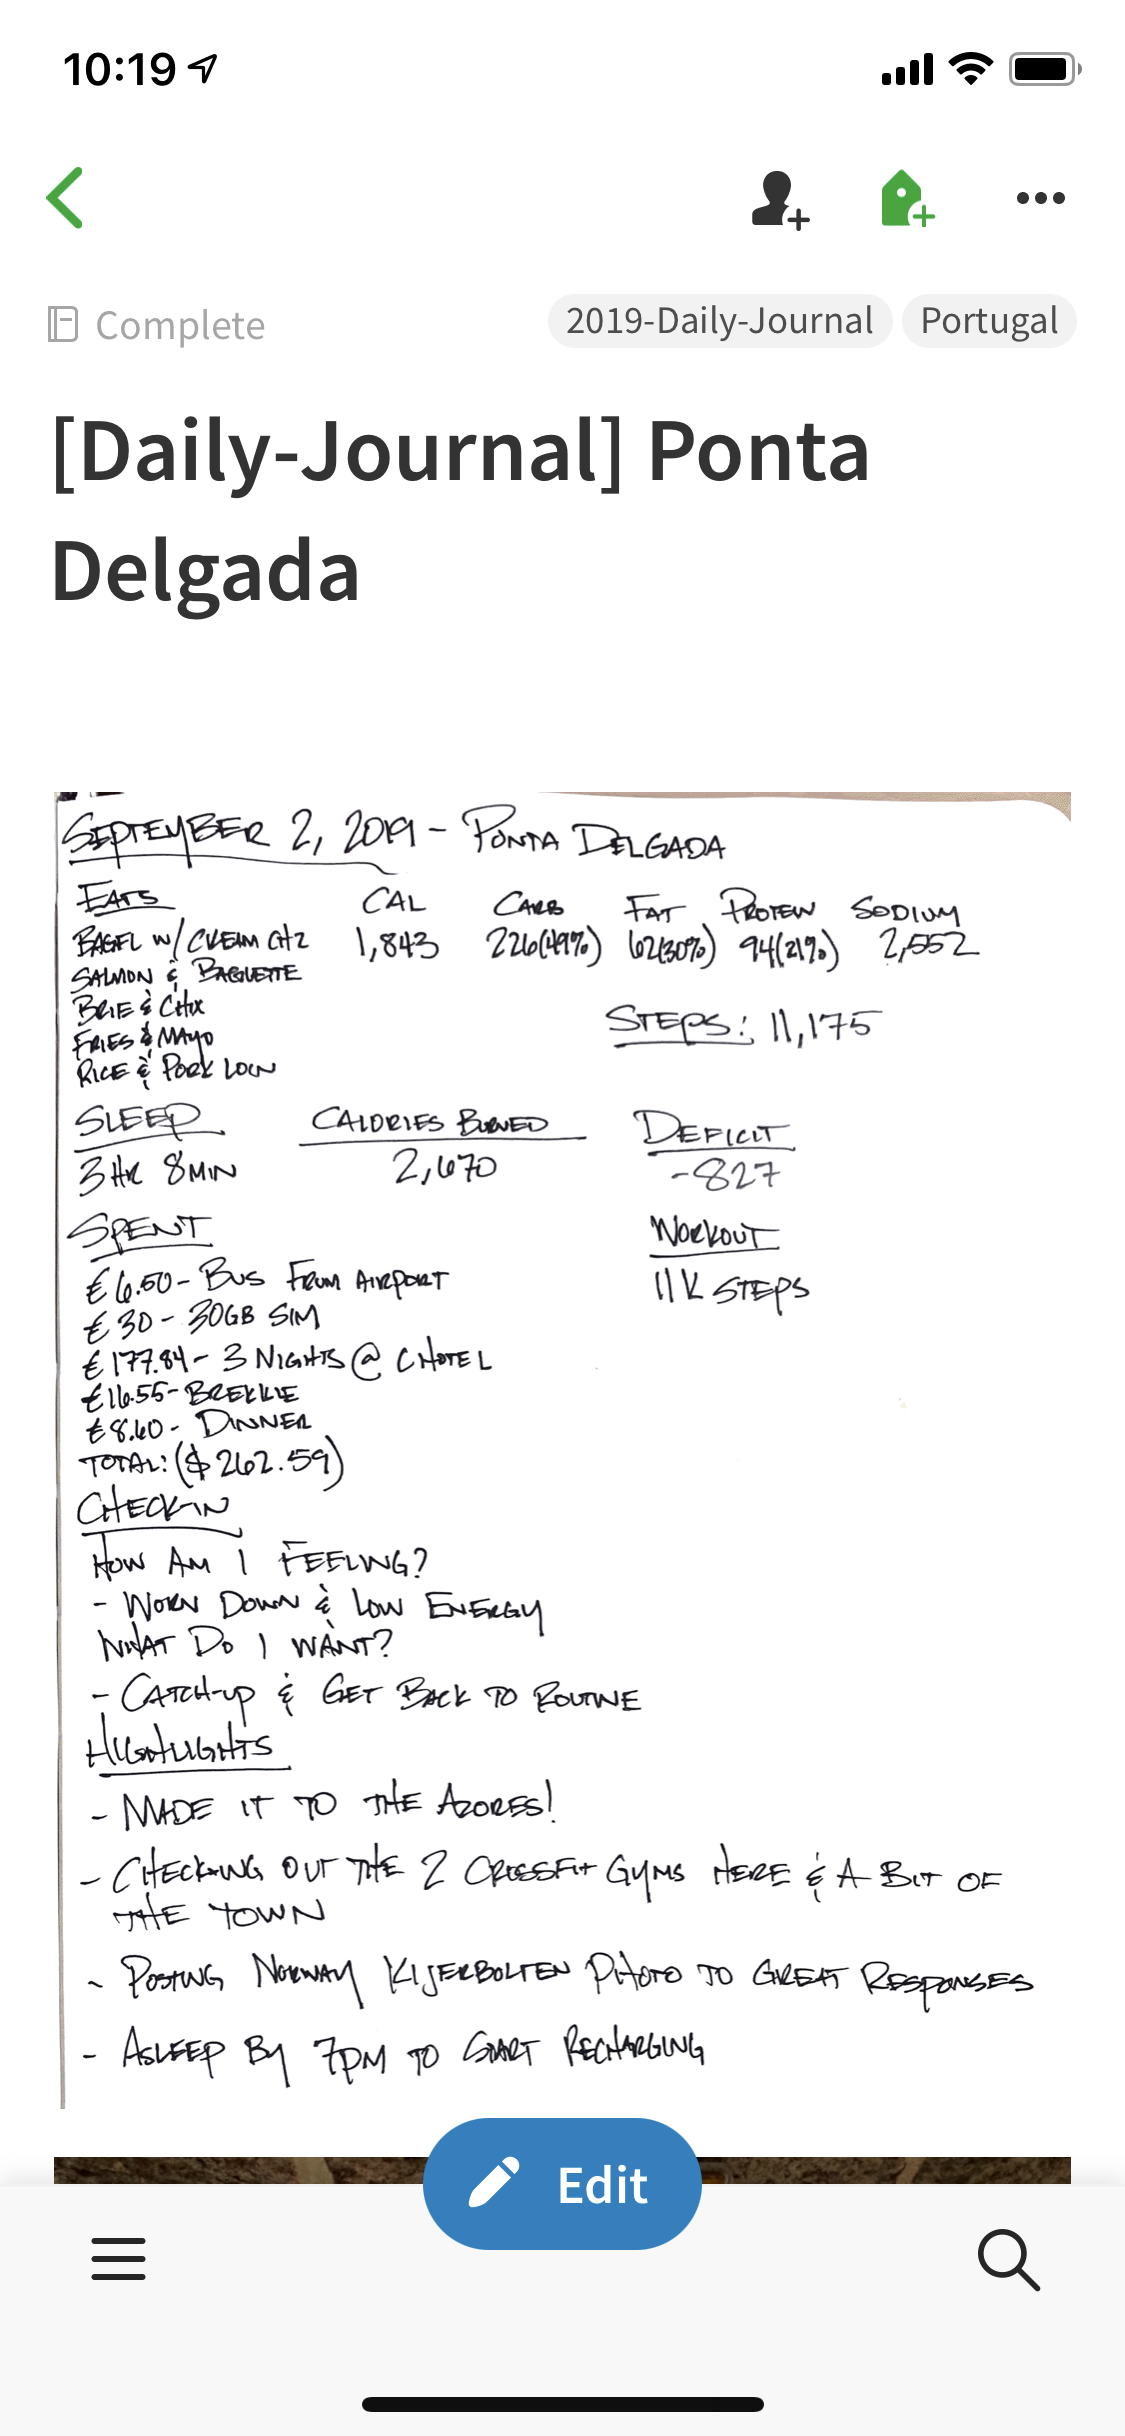 10:19
Complete
2019-Daily-Journal
Portugal
[Daily-Journal] Ponta
Delgada
SEPTEMBER 2, 2019 - PONTA DELGADA
EATS CAL CARB FAT PROTEIN SODIUM
BAGEL W/ CREAM CHZ 1,843 226(49%) 62(30%) 94(21%) 2,552
SALMON & BAGUETTE
BRIE & CHX
FRIES & MAYO
RICE & PORK LOIN
STEPS: 11,175
SLEEP CALORIES BURNED DEFICIT
3 HR 8 MIN 2,670 -827
SPENT WORKOUT
€6.50 - BUS FROM AIRPORT 11K STEPS
€30 - 30GB SIM
€177.84 - 3 NIGHTS @ CHOTEL
€16.55 - BREKKIE
€8.60 - DINNER
TOTAL: ($262.59)
CHECK-IN
HOW AM I FEELING?
- WORN DOWN & LOW ENERGY
WHAT DO I WANT?
- CATCH-UP & GET BACK TO ROUTINE
HIGHLIGHTS
- MADE IT TO THE AZORES!
- CHECKING OUT THE 2 CROSSFIT GYMS HERE & A BIT OF
THE TOWN
- POSTING NORWAY KIJERBOLTEN PHOTO TO GREAT RESPONSES
- ASLEEP BY 7PM TO START RECHARGING
Edit